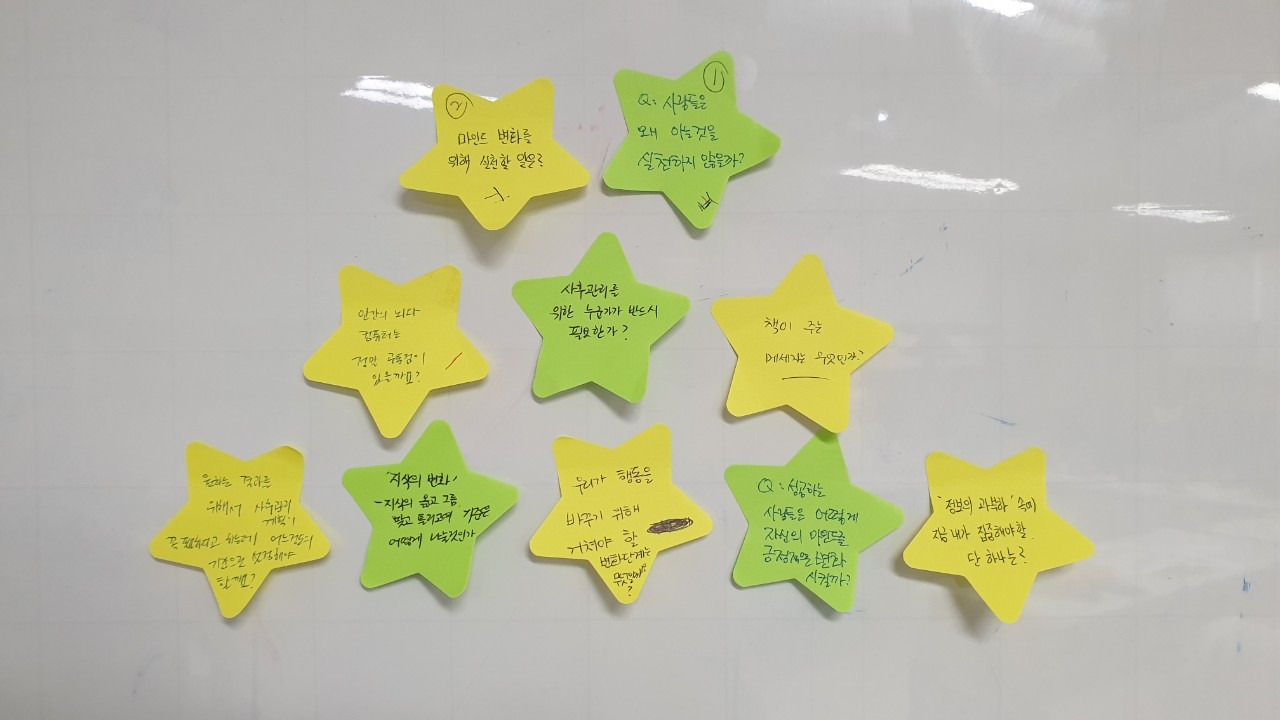 ②
마인드 변화를
위해 실천할 일은?
①
Q: 사람들은
왜 아는것을
실천하지 않을까?
인간의 뇌와
컴퓨터는
정말 공통점이
있을까요?
사후관리를
위한 누군가가 반드시
필요한가?
책이 주는
메세지는 무엇인가?
원하는 결과를
위해서 사후관리
계획이
꼭 필요하다고 하는데 어느정도의
기간으로 설정해야
할까요?
'지식의 변화'
-지식의 옳고 그름
맞고 틀리고의 기준은
어떻게 나눌것인가
우리가 행동을
바꾸기 위해
거쳐야 할
변화단계는
무엇일까?
Q: 성공하는
사람들은 어떻게
자신의 마인드를
긍정적으로 변화
시킬까?
'정보의 과부하' 속에
지금 내가 집중해야할
단 하나는?